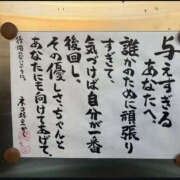 与えすぎる
あなたへ。
誰かのために頑張り
すぎて、
気づけば自分が一番
後回し。
その優しさ、ちゃんと
あなたにも向けてあげて。